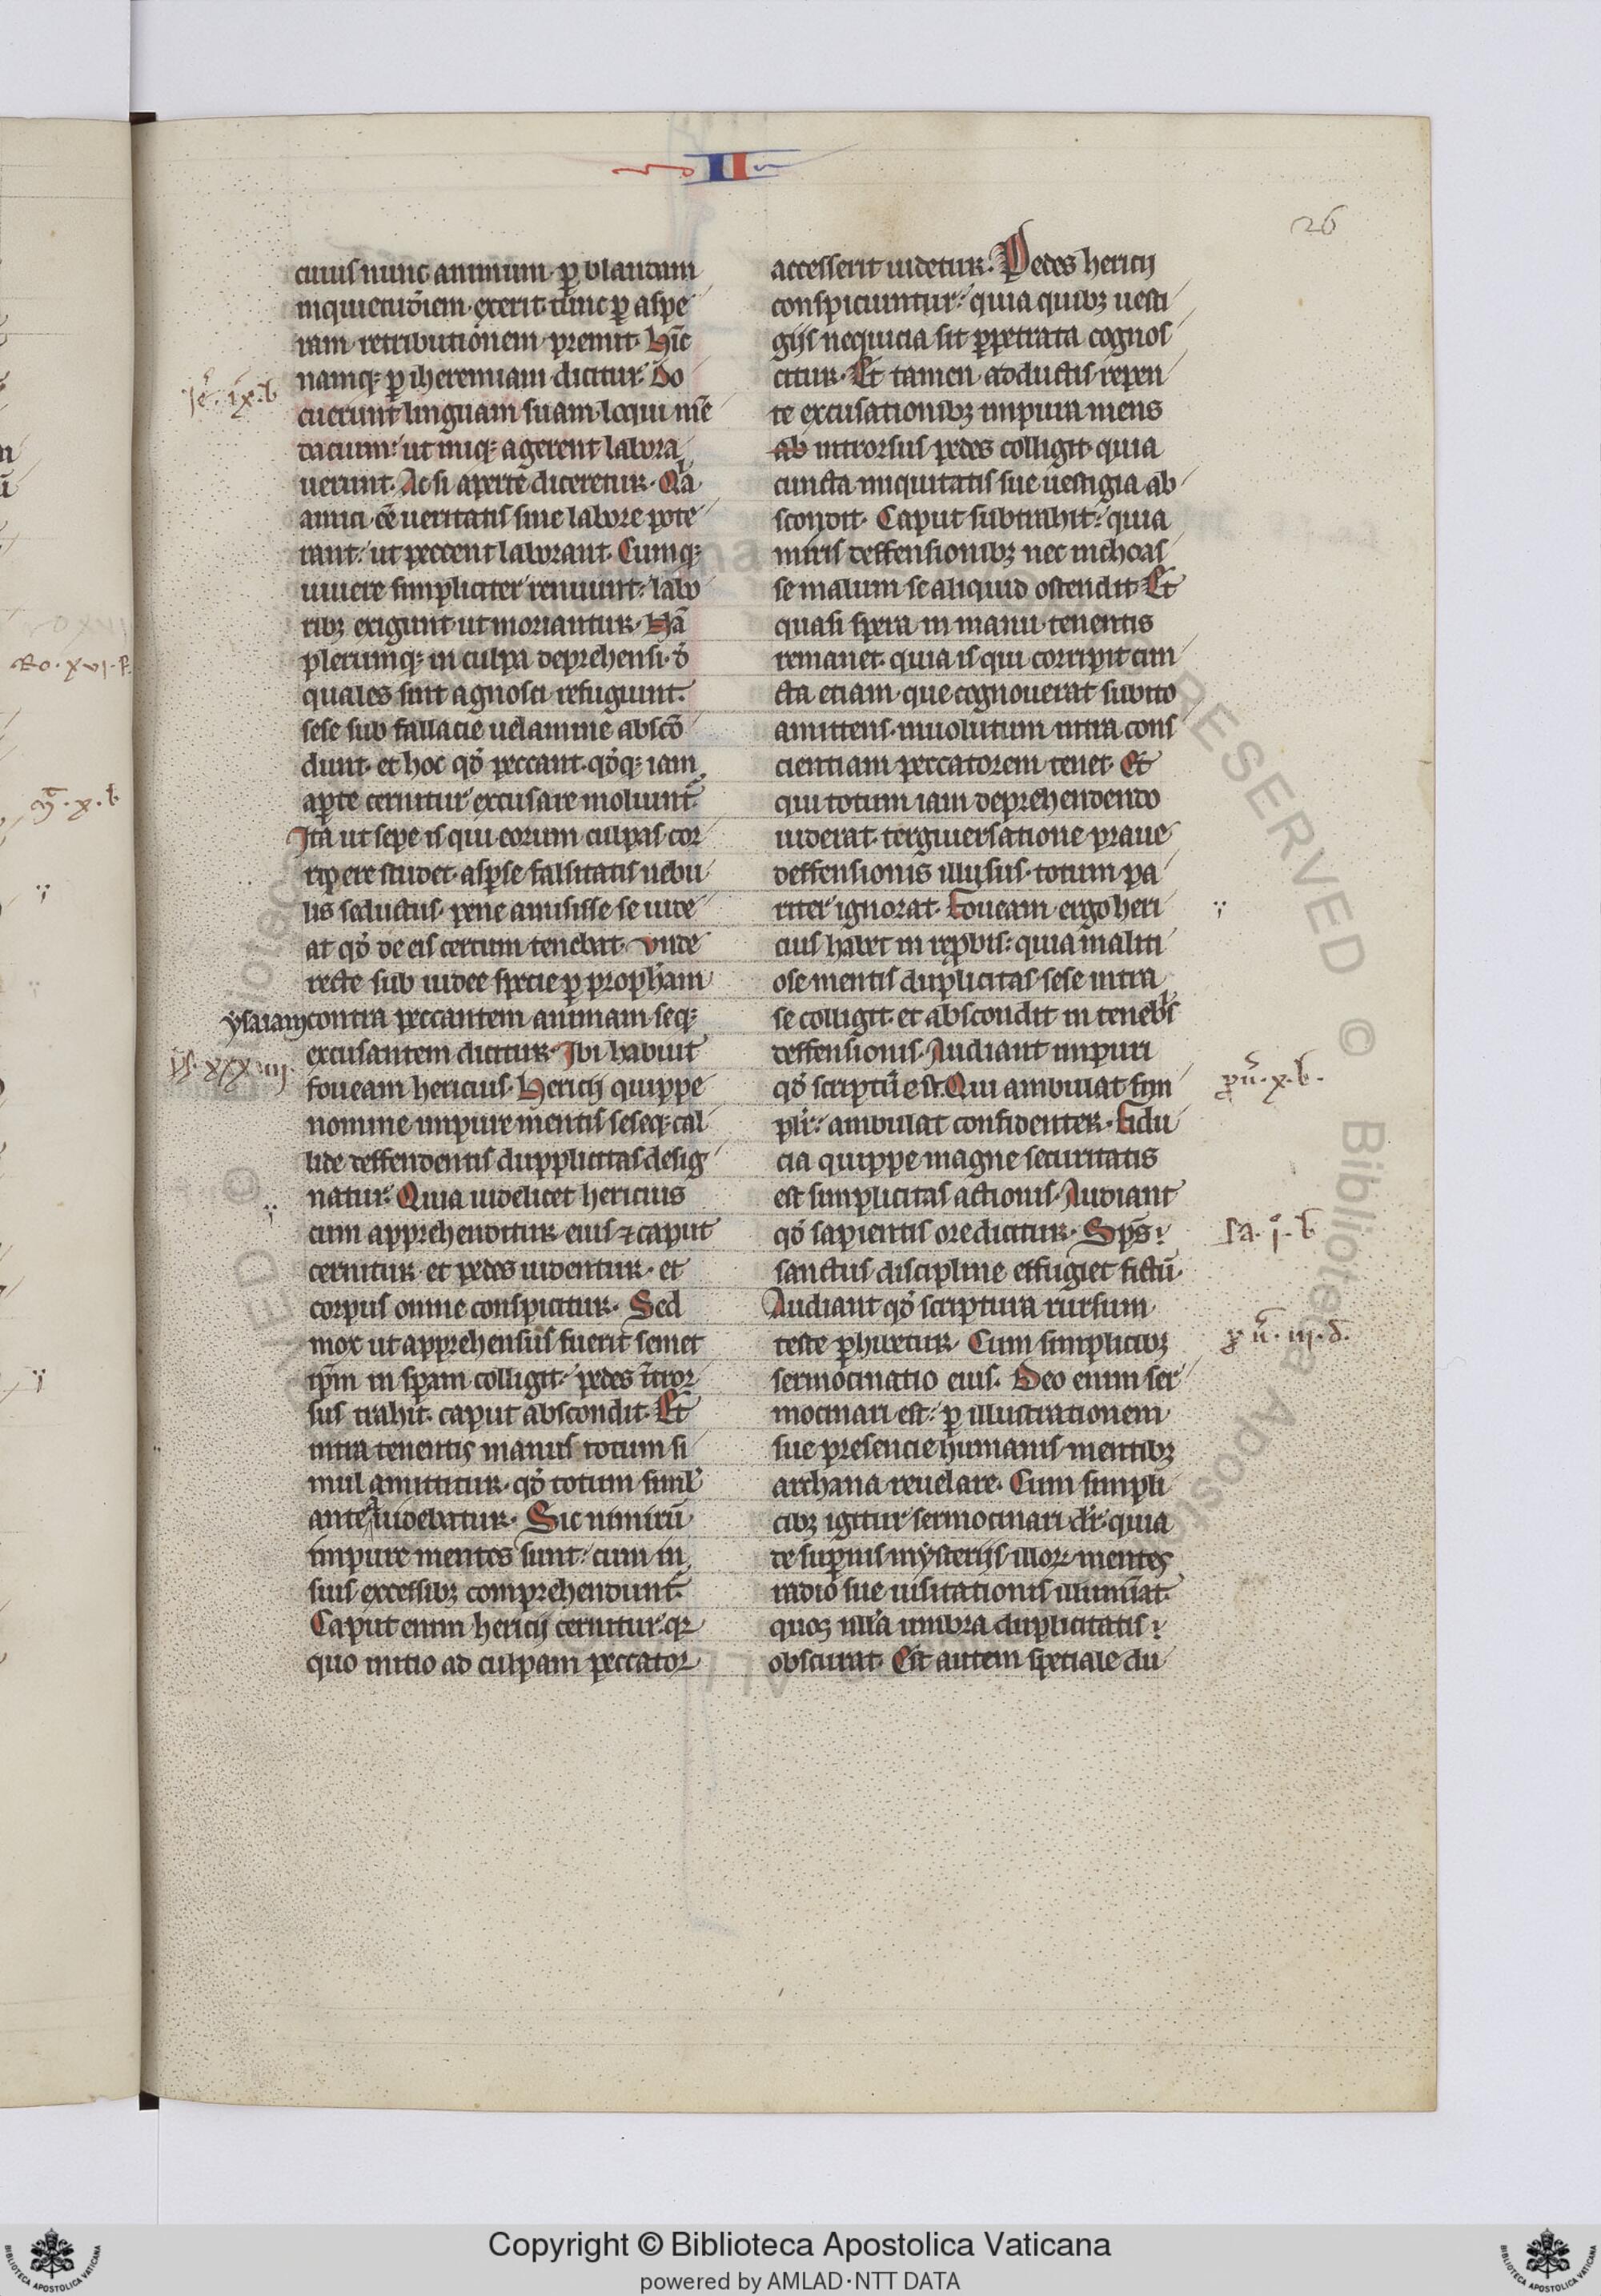 II
26
cuius nunc animum ꝑ blandam
inquietudinem exerit tunc ꝑ aspe
ram retributionem premit. Hĩc
namq; ꝑ iheremiam dicitur. Do
Je. ix. b
cuerunt linguam suam loqui mẽ
dacium: ut iniq; agerent labora
uerunt. Ac si aperte diceretur. Q̇a
amici eẽ ueritatis sine labore pote
rant: ut peccent laborant. Cumq;
uiuere simpliciter renuunt: labo
ribꝫ exigunt ut moriantur. Nã
plerumq; in culpa deprehensi. dũ
quales sint agnosci refugiunt.
sese sub fallacie uelamine abscõ
dunt. et hoc qđ peccant. qđq; iam
aꝑte cernitur excusare moliunt᷑.
Ita ut sepe is qui eorum culpas cor
ripere studet. aspse falsitatis nebu
lis seductus. pene amisisse se uide
at qđ de eis certum tenebat. Vnde
recte sub iudee specie ꝑ prophãm
ysaiam contra peccantem animam seq;
excusantem dicitur. Ibi habuit
ys. xxxiiij.
foueam hericius. Hericij quippe
nomine impure mentis seseq; cal
lide deffendentis dupplicitas desig
natur. Quia uidelicet hericius
cum apprehenditur eius ⁊ caput
cernitur. et pedes uidentur. et
corpus omne conspicitur. Sed
mox ut apprehensus fuerit semet
ip̃m in speram colligit. pedes ĩtror
sus trahit. caput abscondit. Et
intra tenentis manus totum si
mul amittitur. qđ totum simul
antea uidebatur. Sic nimirũ
impure mentes sunt: cum in
suis excessibꝫ comprehendunt᷑.
Caput enim hericij cernitur. qꝛ
quo initio ad culpam peccator
accesserit uidetur. Pedes hericij
conspiciuntur: quia quibꝫ uesti
gijs nequicia sit ꝑpetrata cognos
citur. Et tamen adductis repen
te excusationibꝫ impura mens
ab introrsus pedes colligit. quia
cuncta iniquitatis sue uestigia ab
scondit. Caput subtrahit: quia
miris deffensionibꝫ nec inchoas
se malum se aliquid ostendit. Et
quasi spera in manu tenentis
remanet. quia is qui corripit cun
cta etiam que cognouerat subito
amittens. inuolutum intra cons
cientiam peccatorem tenet. Et
qui totum iam deprehendendo
uiderat. tergiuersatione praue
deffensionis illusus. totum pa
riter ignorat. Foueam ergo heri
cius habet in reꝓbis: quia maliti
ose mentis duplicitas. sese intra
se colligit. et abscondit in tenebr̃s
deffensionis. Audiant impuri
qđ scriptũ est. Qui ambulat sim
pl̃r: ambulat confidenter. Fidu
pũ. x. b.
cia quippe magne securitatis
est simplicitas actionis. Audiant
qđ sapientis ore dicitur. Sp̃s
sa. i. b
sanctus discipline effugiet fictũ.
Audiant qđ scriptura rursum
teste ꝑhibetur. Cum simplicibꝫ
pũ. iij. d.
sermocinatio eius. Deo enim ser
mocinari est: ꝑ illustrationem
sue presencie humanis mentibꝫ
archana reuelare. Cum simpli
cibꝫ igitur sermocinari dr̃. quia
de suꝑnis mysterijs illoꝝ mentes
radio sue uisitationis illumĩat.
quos nulla umbra duplicitatis
obscurat. Est autem speciale du
Ro. xvi. f.
m̃. x. b
Copyright © Biblioteca Apostolica Vaticana
powered by AMLAD·NTT DATA